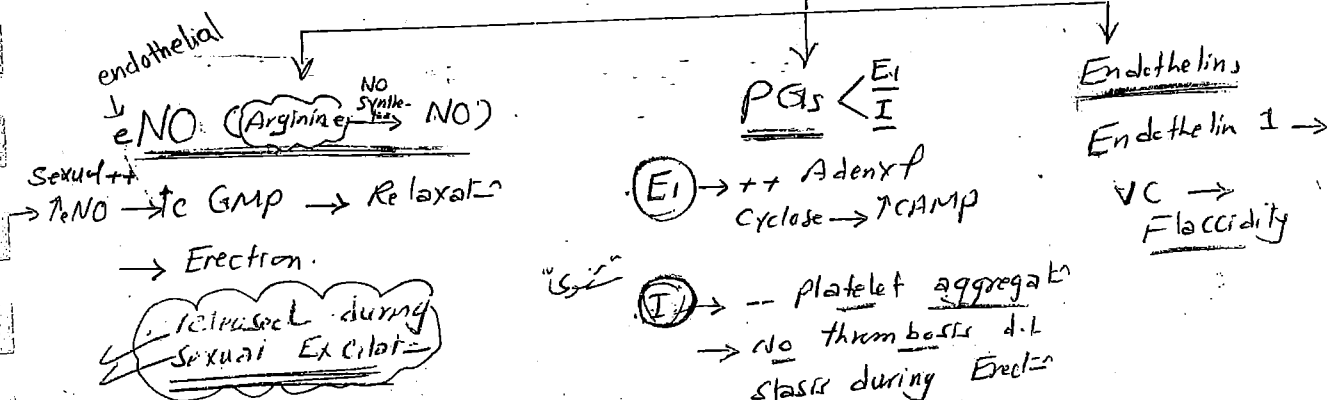 endothelial
eNO (Arginine NO Synthe- NO)
Sexual ++
→ ↑eNO → ↑c GMP → Relaxat
→ Erection.
released during
Sexual Excitat
PGs < E1
I
E1 → ++ Adenyl
Cyclase → ↑CAMP
I → -- Platelet aggregat
→ No thrombosis d.t
stasis during Erect
Endothelins
Endothelin 1 →
VC →
Flaccidity